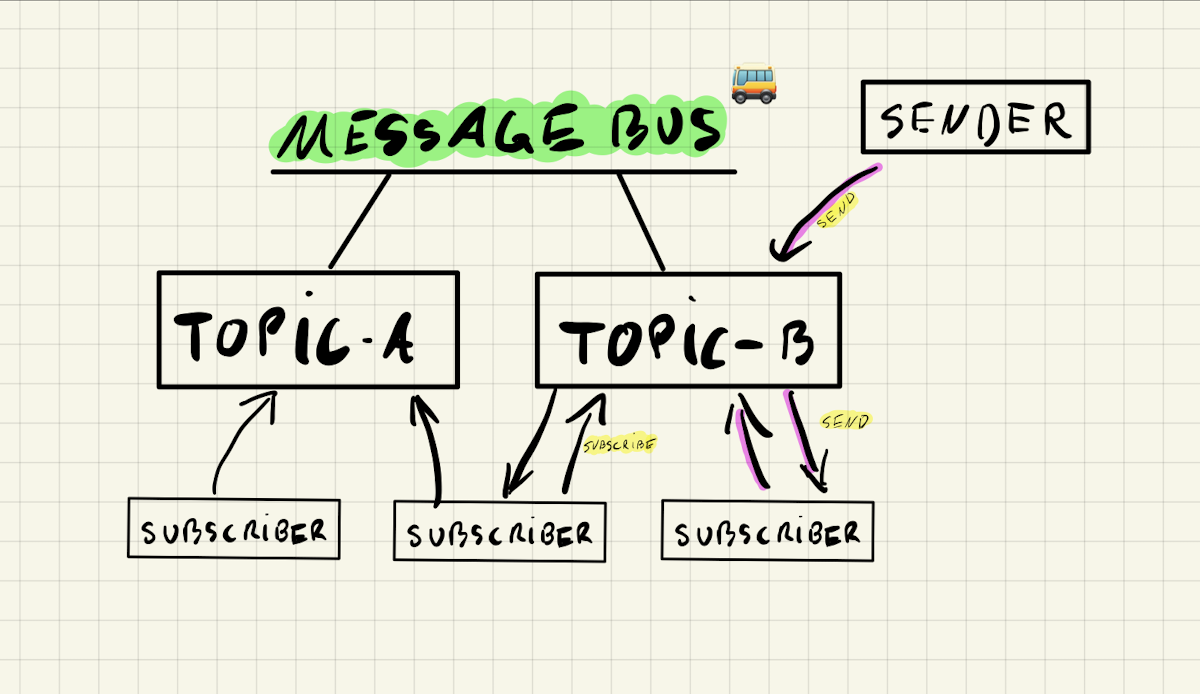 MESSAGE BUS
SENDER
SEND
TOPiC-A
TOPiC-B
SUBSCRIBE
SEND
SUBSCRiBER
SUBSCRiBER
SUBSCRiBER